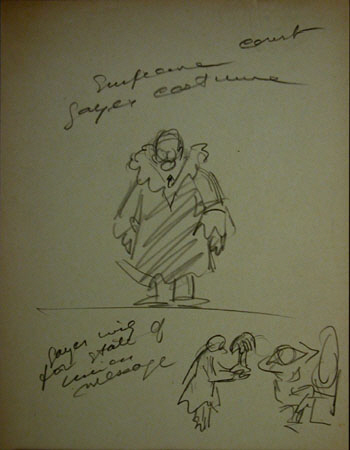 Supreme court
Gayer costume
Gayer wig
for State of
Union
message